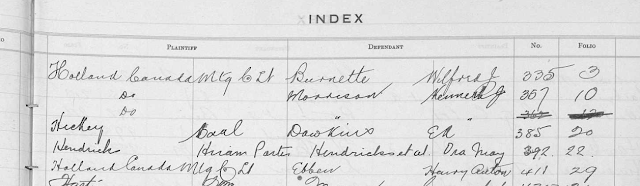 INDEX
PLAINTIFF DEFENDANT NO. FOLIO
Holland Canada Mtg C Lt Burnette Wilford J 335 3
Do Morrison Kenneth J 357 10
Do " "
Hickey Carl Dawkins Ed 385 20
Hendricks Hiram Porter Hendricks et al Ora May 392 22
Holland Canada Mtg C Lt Ebben Henry 411 29